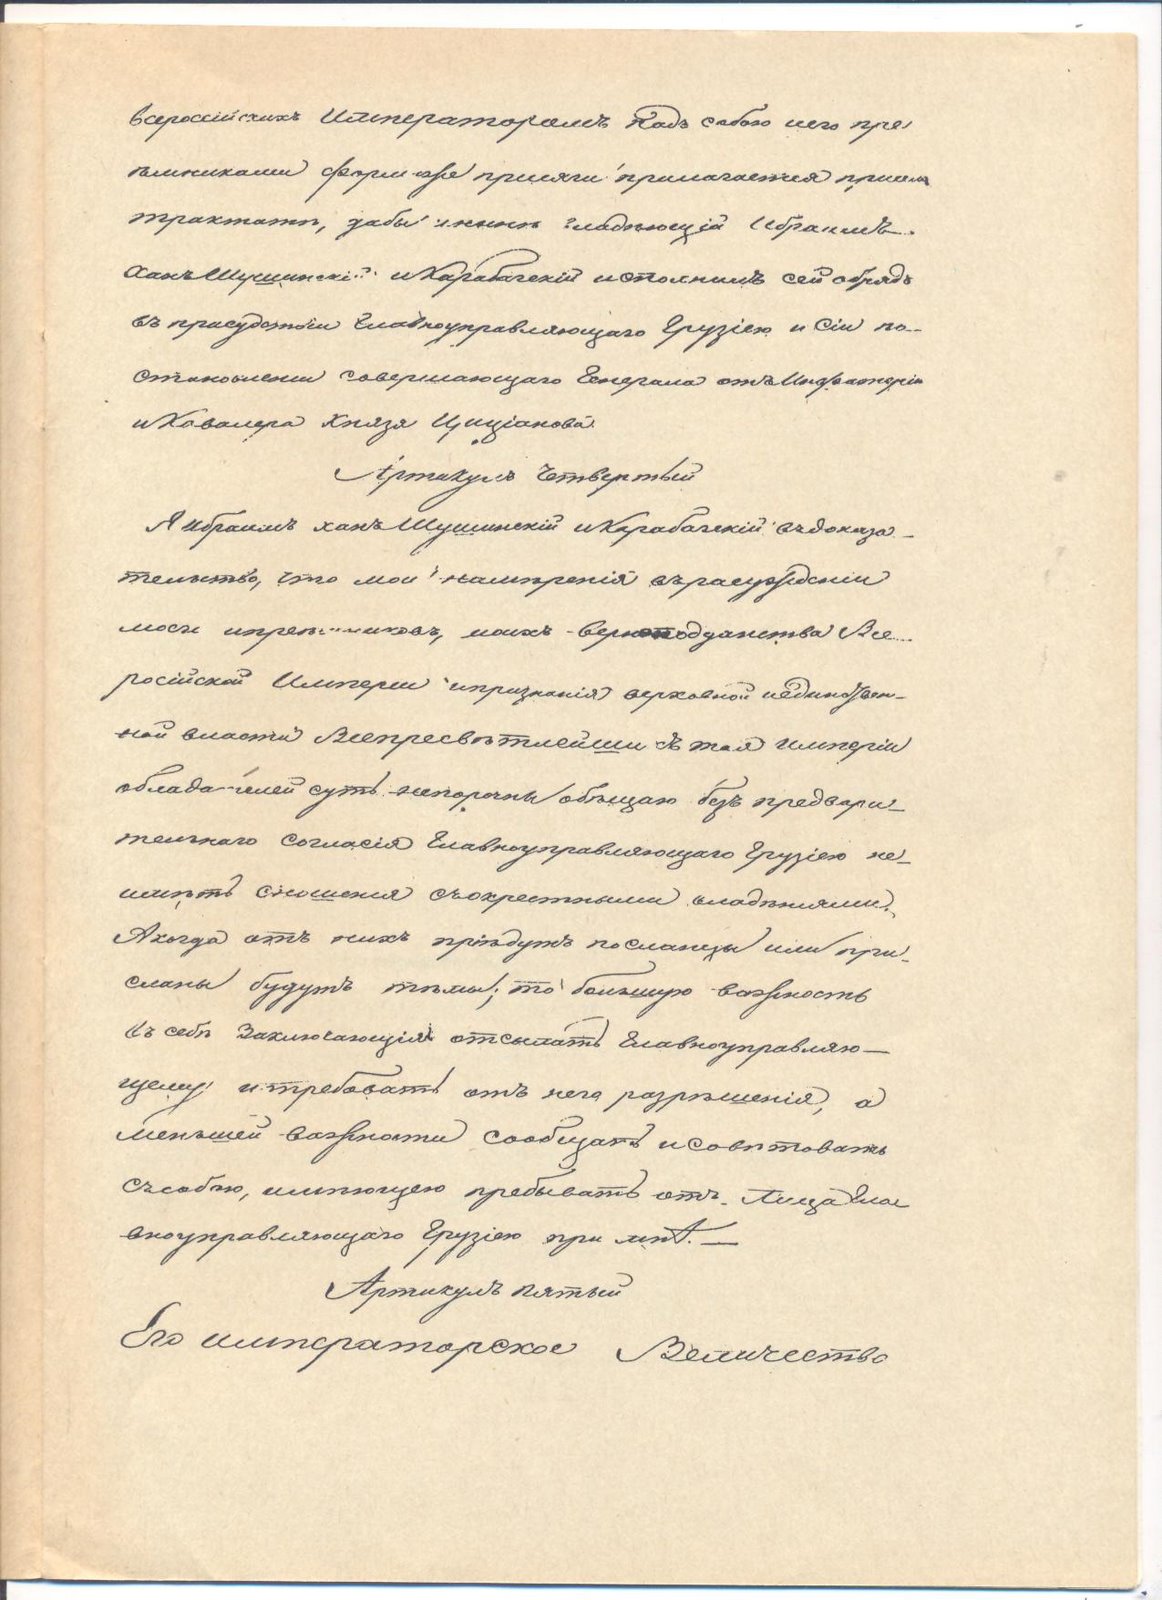 всероссійскихъ Императоровъ надъ собою и его пре
емниками форма же присяги прилагается при семъ
трактатѣ, дабы и нынѣ владѣющій Ибраимъ
Ханъ Шушинскій и Карабагскій исполнилъ сей обрядъ
въ присудствіи Главноуправляющаго Грузіею и сіи по-
становленіи совершающаго Генерала отъ Инфантеріи
и Кавалера Князя Циціанова.
Артикулъ Четвертый
Я Ибраимъ ханъ Шушинскій и Карабагскій въ доказа-
тельство, что мои намѣренія въ расужденіи
моего и преемниковъ моихъ верноподданства Все-
російской Имперіи и признанія верховной и единствен-
ной власти Всепресвѣтлейшихъ тоя имперіи
обладателей суть непорочны обѣщаю безъ предвари-
тельнаго согласія Главноуправляющаго Грузіею не-
имѣть сношенія съ окрестными владѣніями.
А когда отъ нихъ приѣдутъ посланцы или при-
сланы будутъ письма; то большую важность
въ себѣ заключающія отсылать Главноуправляю-
щему и требовать отъ него разрѣшенія, а
меньшей важности сообщать и совѣтовать
съ особою, имѣющею пребывать отъ лица Глав
вноуправляющаго Грузіею при мнѣ. —
Артикулъ пятый
Его императорское Величество